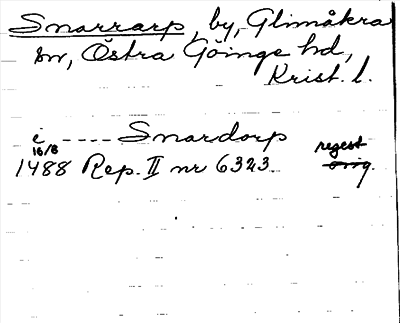 Snarrarp, by, Glimåkra
sn, Östra Göinge hd,
Krist. l.
i ---- Snardorp
16/8
1488 Rep. II nr 6323. regest
orig.